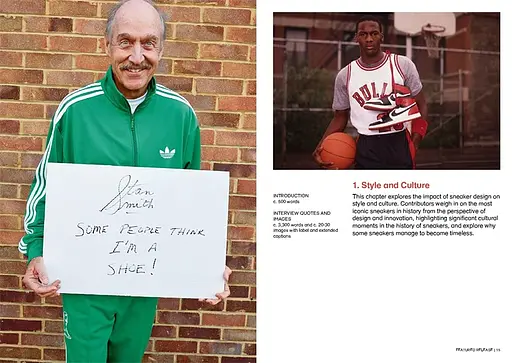 adidas
Stan
Smith
SOME PEOPLE THINK
I'M A
SHOE!
BULLS
INTRODUCTION
c. 500 words
INTERVIEW QUOTES AND
IMAGES
c. 3,300 words and c. 20-30
images with label and extended
captions
1. Style and Culture
This chapter explores the impact of sneaker design on
style and culture. Contributors weigh in on the most
iconic sneakers in history from the perspective of
design and innovation, highlighting significant cultural
moments in the history of sneakers, and explore why
some sneakers manage to become timeless.